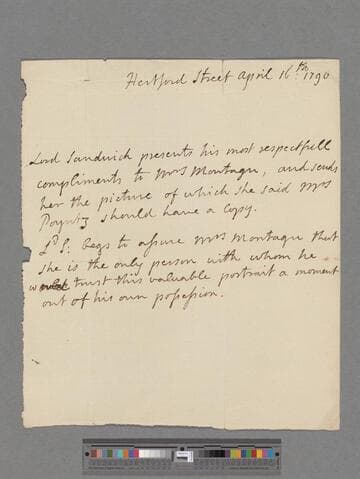 Hertford Street April 16th. 1790
Lord Sandwich presents his most respectfull
compliments to Mrs Montagu, and sends
her the picture of which she said Mrs
Poyntz should have a copy.
Ld S: begs to assure Mrs Montagu that
she is the only person with whom he
trust this valuable portrait a moment
out of his own possession.